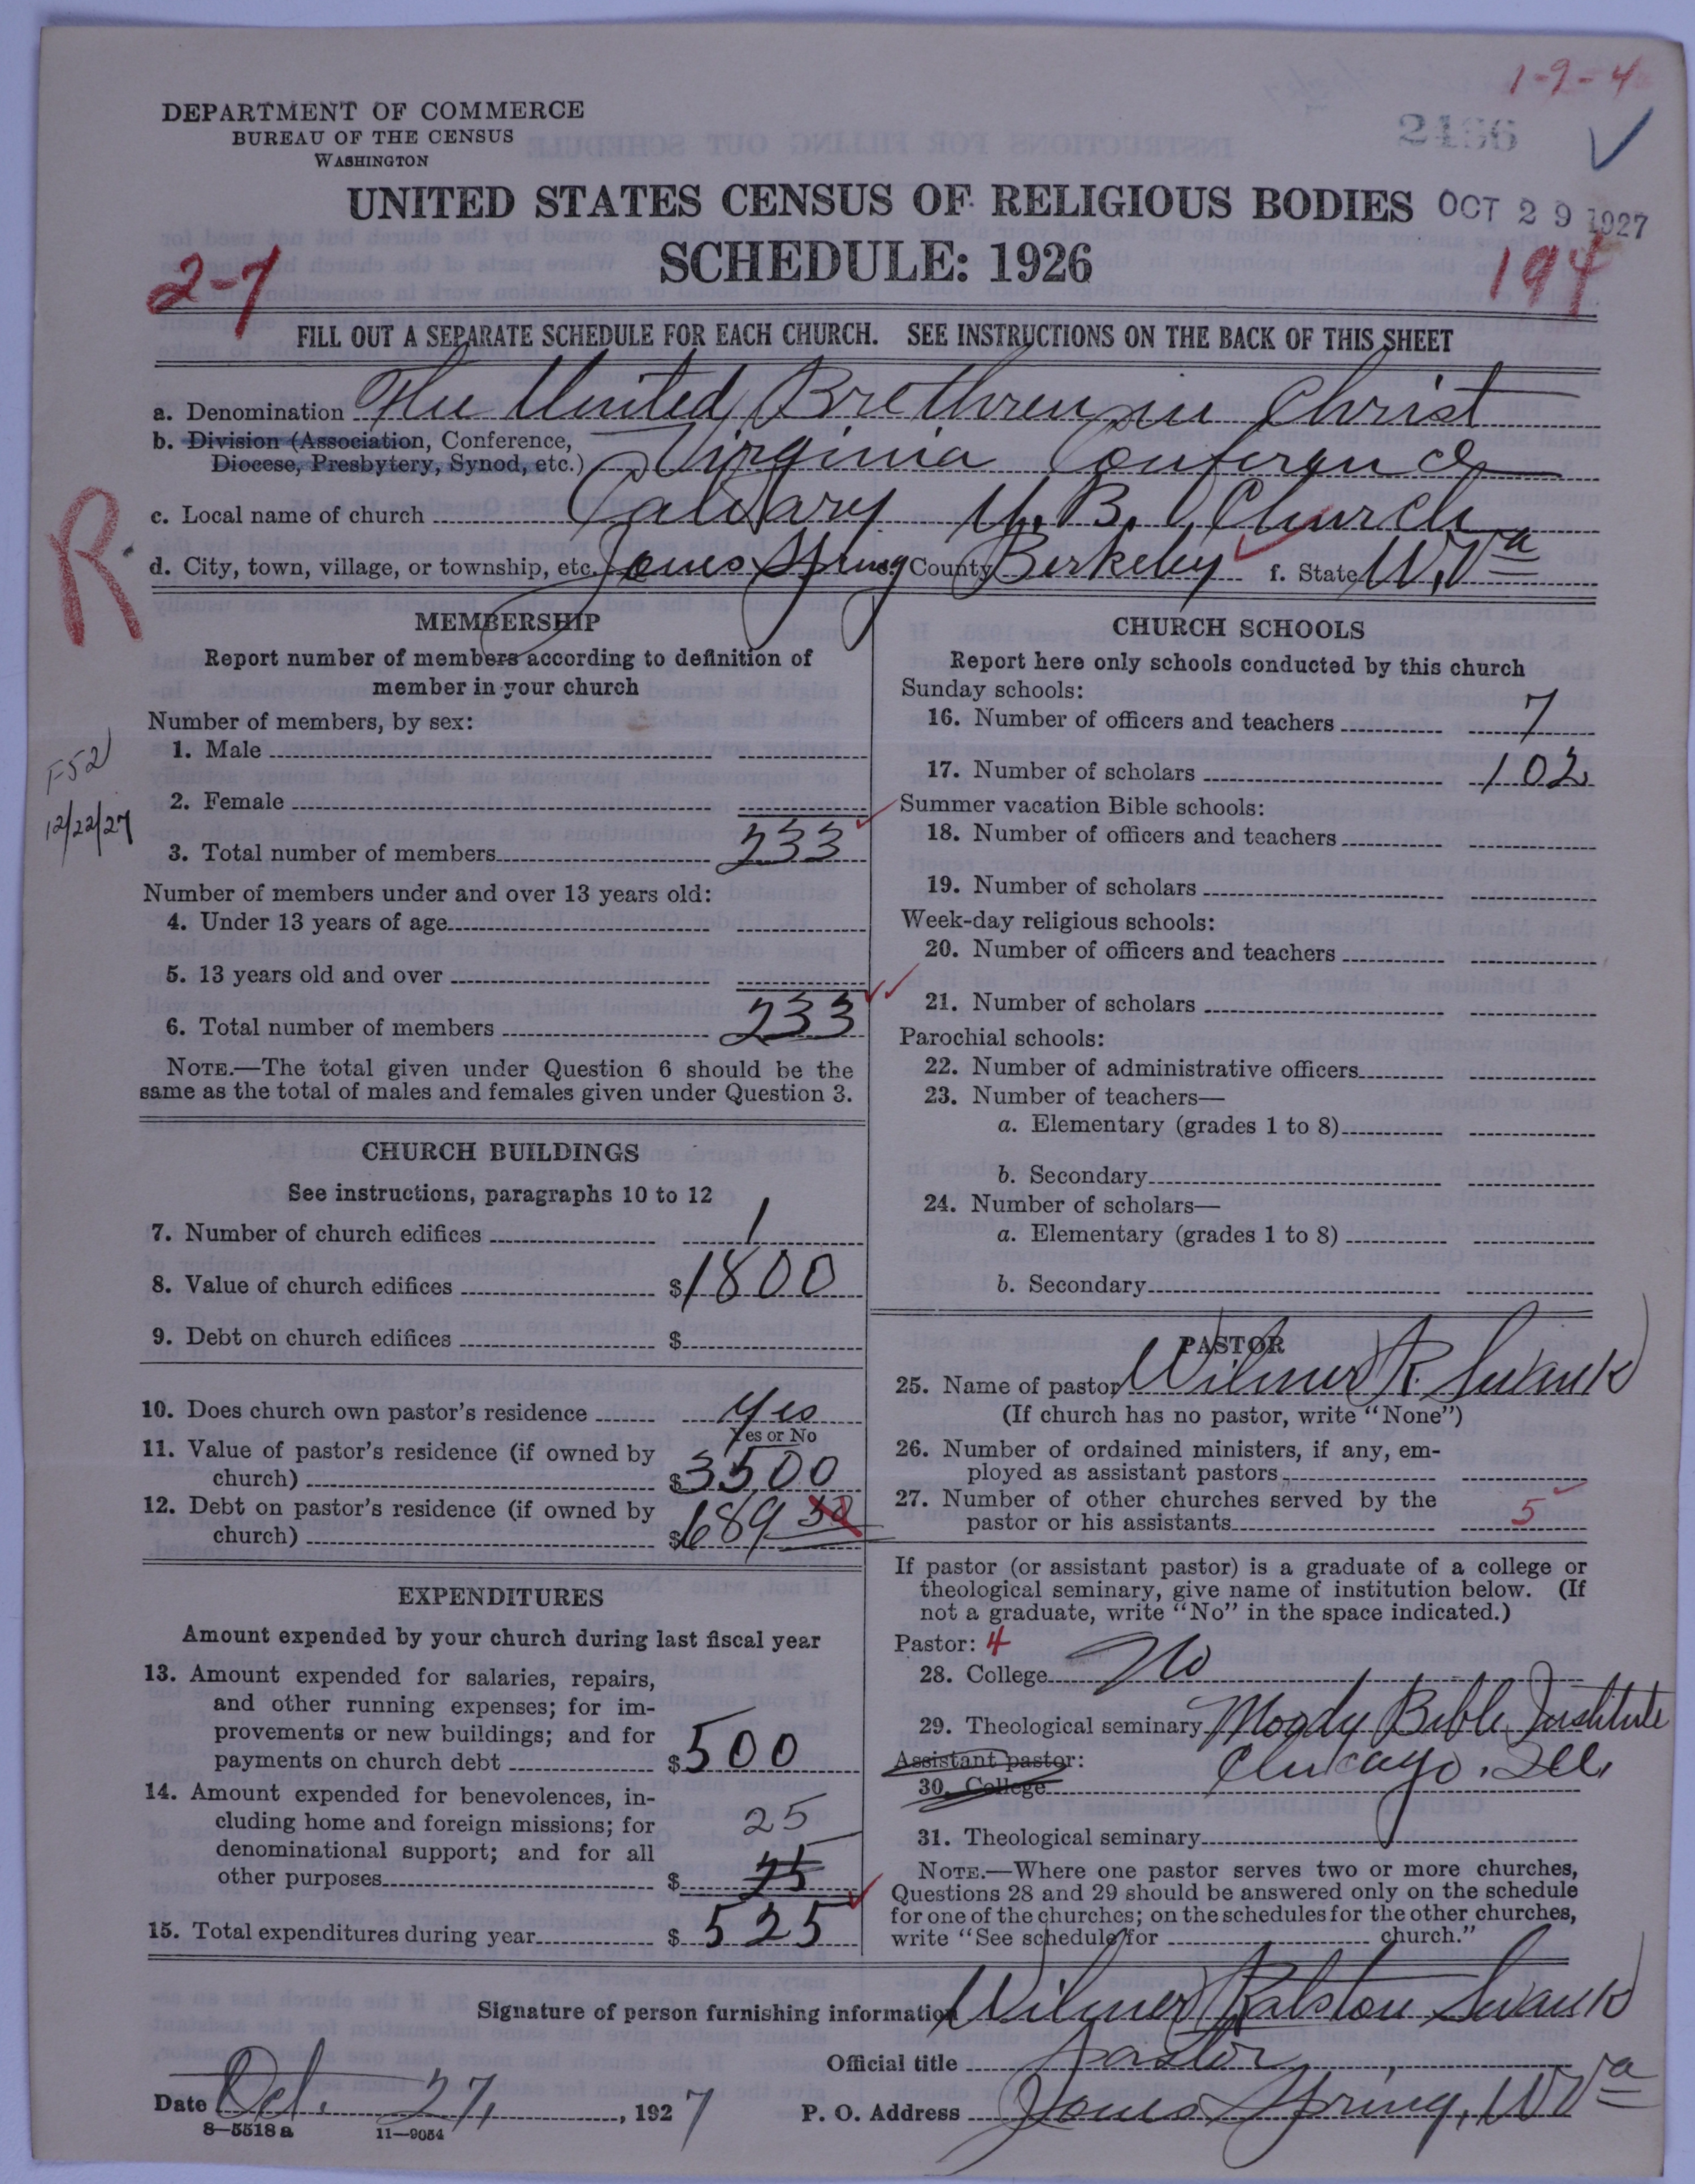 1-9-4
DEPARTMENT OF COMMERCE
BUREAU OF THE CENSUS
WASHINGTON
2466
UNITED STATES CENSUS OF RELIGIOUS BODIES
OCT 29 1927
SCHEDULE: 1926
2-7
194
FILL OUT A SEPARATE SCHEDULE FOR EACH CHURCH. SEE INSTRUCTIONS ON THE BACK OF THIS SHEET
a. Denomination The United Brethren in Christ
b. Division (Association, Conference,
Diocese, Presbytery, Synod, etc.) Virginia Conference
c. Local name of church Calvary U. B. Church
d. City, town, village, or township, etc. Jones Spring County Berkeley f. State W. Va
R
MEMBERSHIP
Report number of members according to definition of
member in your church
Number of members, by sex:
1. Male
F52
2. Female
12/22/27
3. Total number of members 233
Number of members under and over 13 years old:
4. Under 13 years of age
5. 13 years old and over
6. Total number of members 233
NOTE.—The total given under Question 6 should be the
same as the total of males and females given under Question 3.
CHURCH BUILDINGS
See instructions, paragraphs 10 to 12
7. Number of church edifices 1
8. Value of church edifices $1800
9. Debt on church edifices $
10. Does church own pastor's residence Yes
Yes or No
11. Value of pastor's residence (if owned by
church) $3500
12. Debt on pastor's residence (if owned by
church) $1689 50
EXPENDITURES
Amount expended by your church during last fiscal year
13. Amount expended for salaries, repairs,
and other running expenses; for im-
provements or new buildings; and for
payments on church debt $500
14. Amount expended for benevolences, in-
cluding home and foreign missions; for 25
denominational support; and for all
other purposes $
15. Total expenditures during year $ 525
CHURCH SCHOOLS
Report here only schools conducted by this church
Sunday schools:
16. Number of officers and teachers 7
17. Number of scholars 102
Summer vacation Bible schools:
18. Number of officers and teachers
19. Number of scholars
Week-day religious schools:
20. Number of officers and teachers
21. Number of scholars
Parochial schools:
22. Number of administrative officers
23. Number of teachers—
a. Elementary (grades 1 to 8)
b. Secondary
24. Number of scholars—
a. Elementary (grades 1 to 8)
b. Secondary
PASTOR
25. Name of pastor Wilmer R. Swank
(If church has no pastor, write "None")
26. Number of ordained ministers, if any, em-
ployed as assistant pastors
27. Number of other churches served by the
pastor or his assistants 5
If pastor (or assistant pastor) is a graduate of a college or
theological seminary, give name of institution below. (If
not a graduate, write "No" in the space indicated.)
Pastor: 4
28. College No
29. Theological seminary Moody Bible Institute
Assistant pastor: Chicago, Ill.
30. College
31. Theological seminary
NOTE.—Where one pastor serves two or more churches,
Questions 28 and 29 should be answered only on the schedule
for one of the churches; on the schedules for the other churches,
write "See schedule for church."
Signature of person furnishing information Wilmer Ralston Swank
Official title Pastor
Date Oct. 27, 1927
P. O. Address Jones Spring, W Va
8—5518 a
11—9054